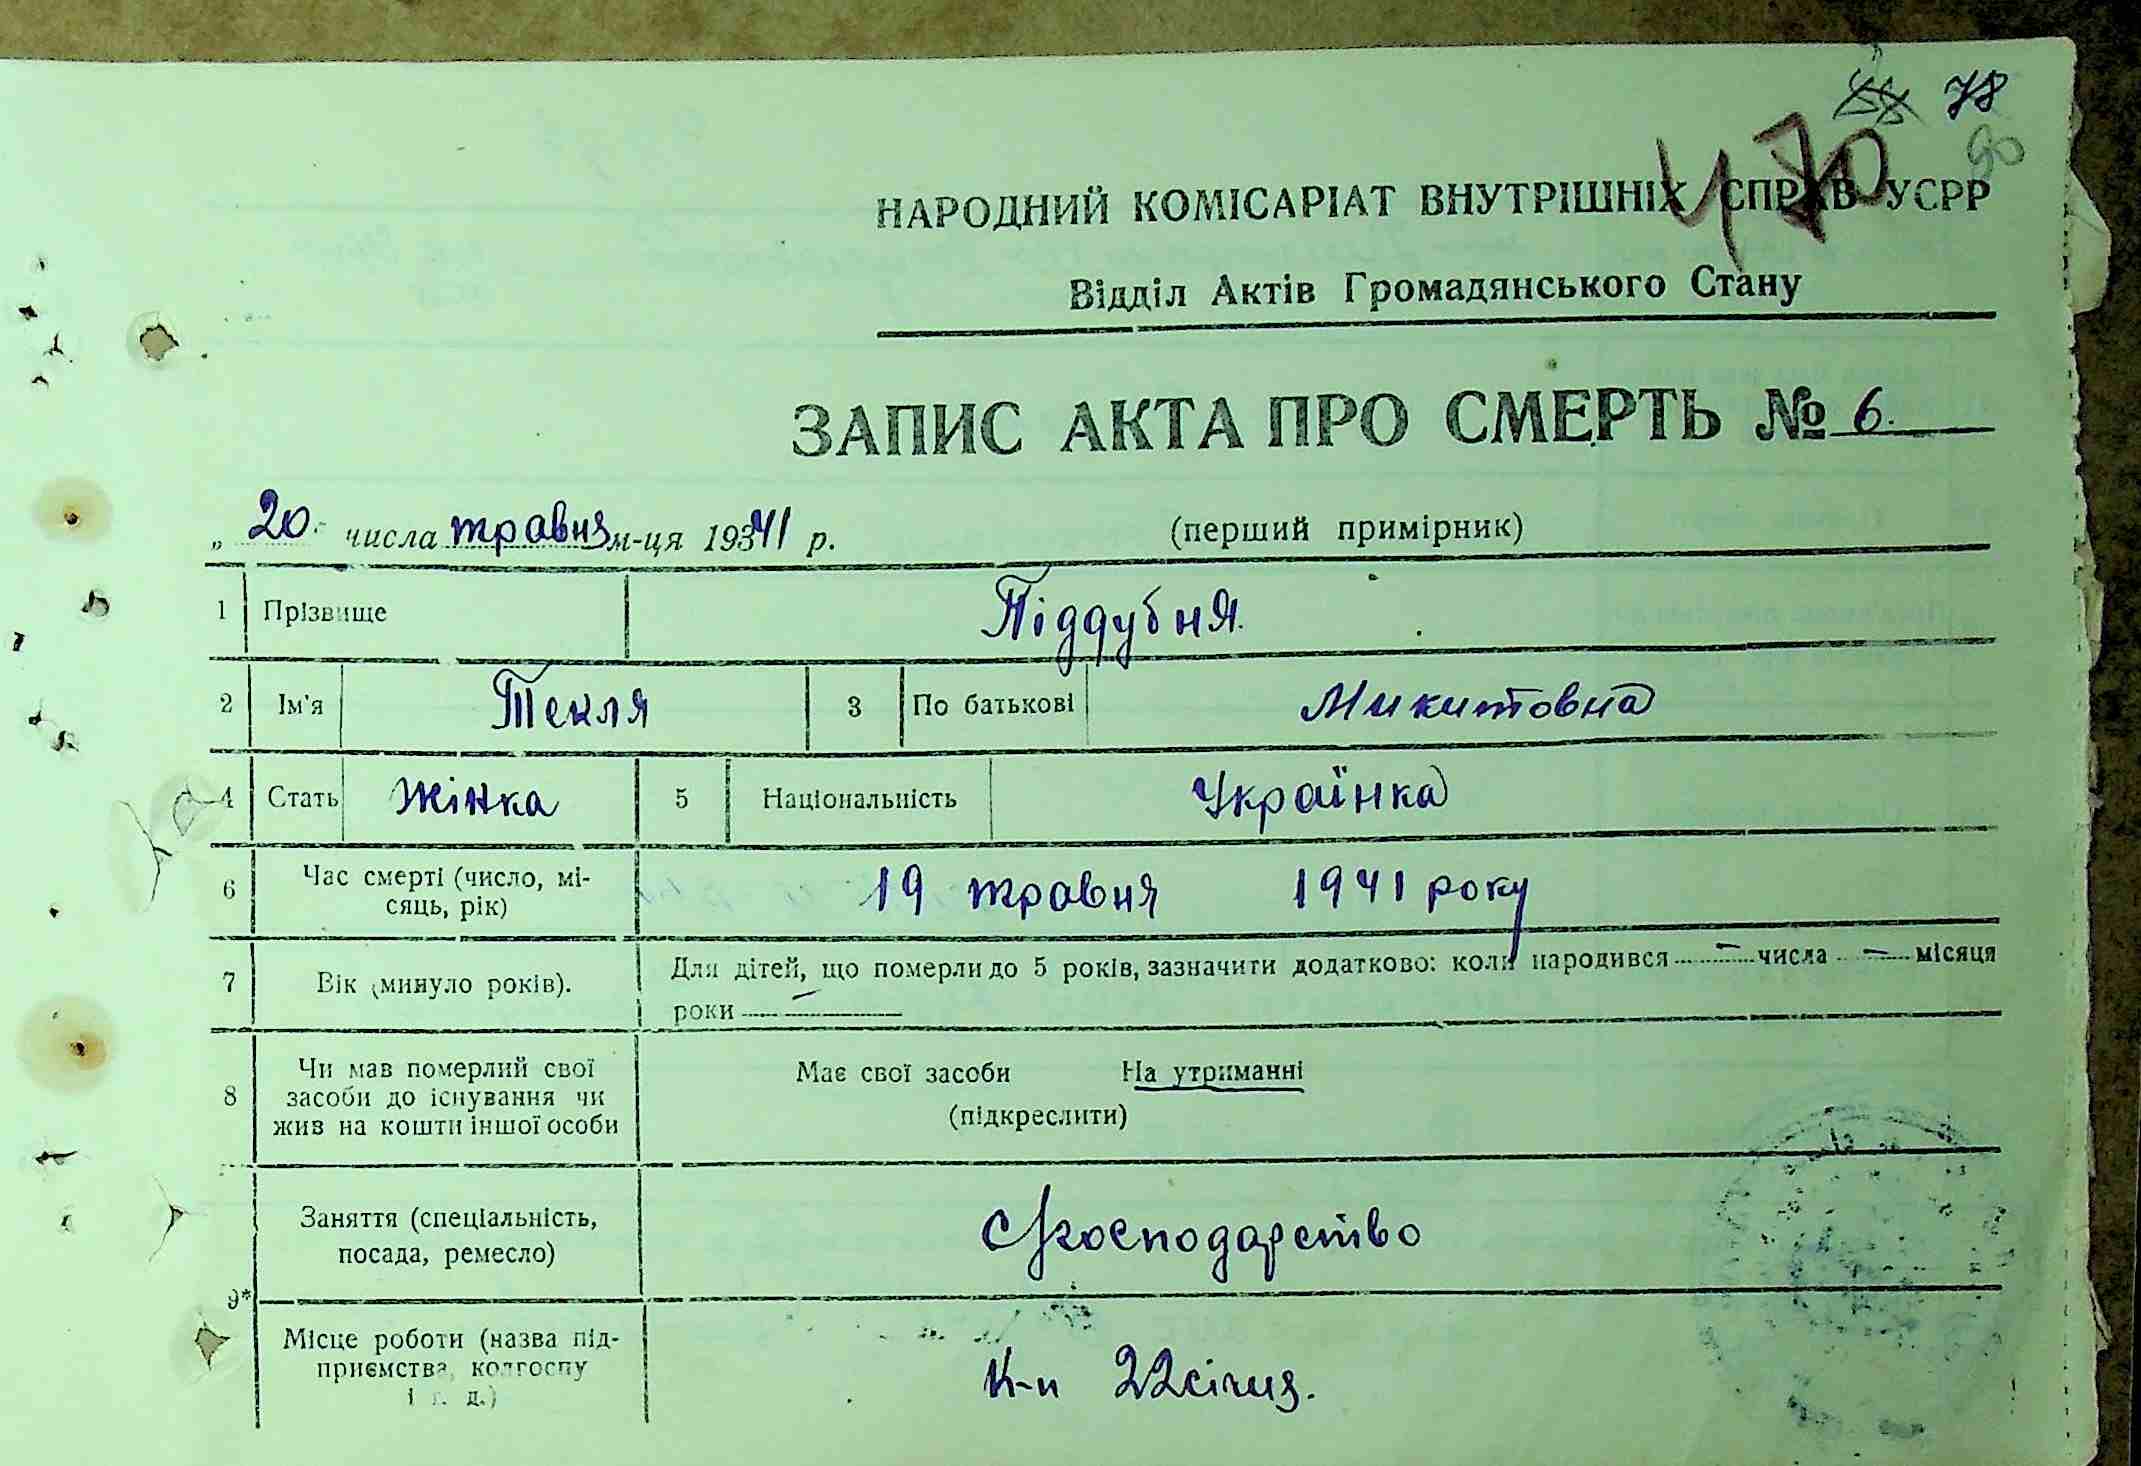 78
90
470
НАРОДНИЙ КОМІСАРІАТ ВНУТРІШНІХ СПРАВ УСРР
Відділ Актів Громадянського Стану
ЗАПИС АКТА ПРО СМЕРТЬ № 6.
„ 20 числа травня м-ця 1941 р. (перший примірник)
1 Прізвище Піддубня.
2 Ім'я Текля 3 По батькові Микитовна
4 Стать Жінка 5 Національність Українка
6 Час смерті (число, мі-
сяць, рік) 19 травня 1941 року
7 Вік (минуло років). Для дітей, що померли до 5 років, зазначити додатково: коли народився — числа — місяця
роки —
8 Чи мав померлий свої
засоби до існування чи
жив на кошти іншої особи
Має свої засоби На утриманні
(підкреслити)
Заняття (спеціальність,
посада, ремесло) С/господарство
9*
Місце роботи (назва під-
приємства, колгоспу
і т. д.) К-п 22 січня.